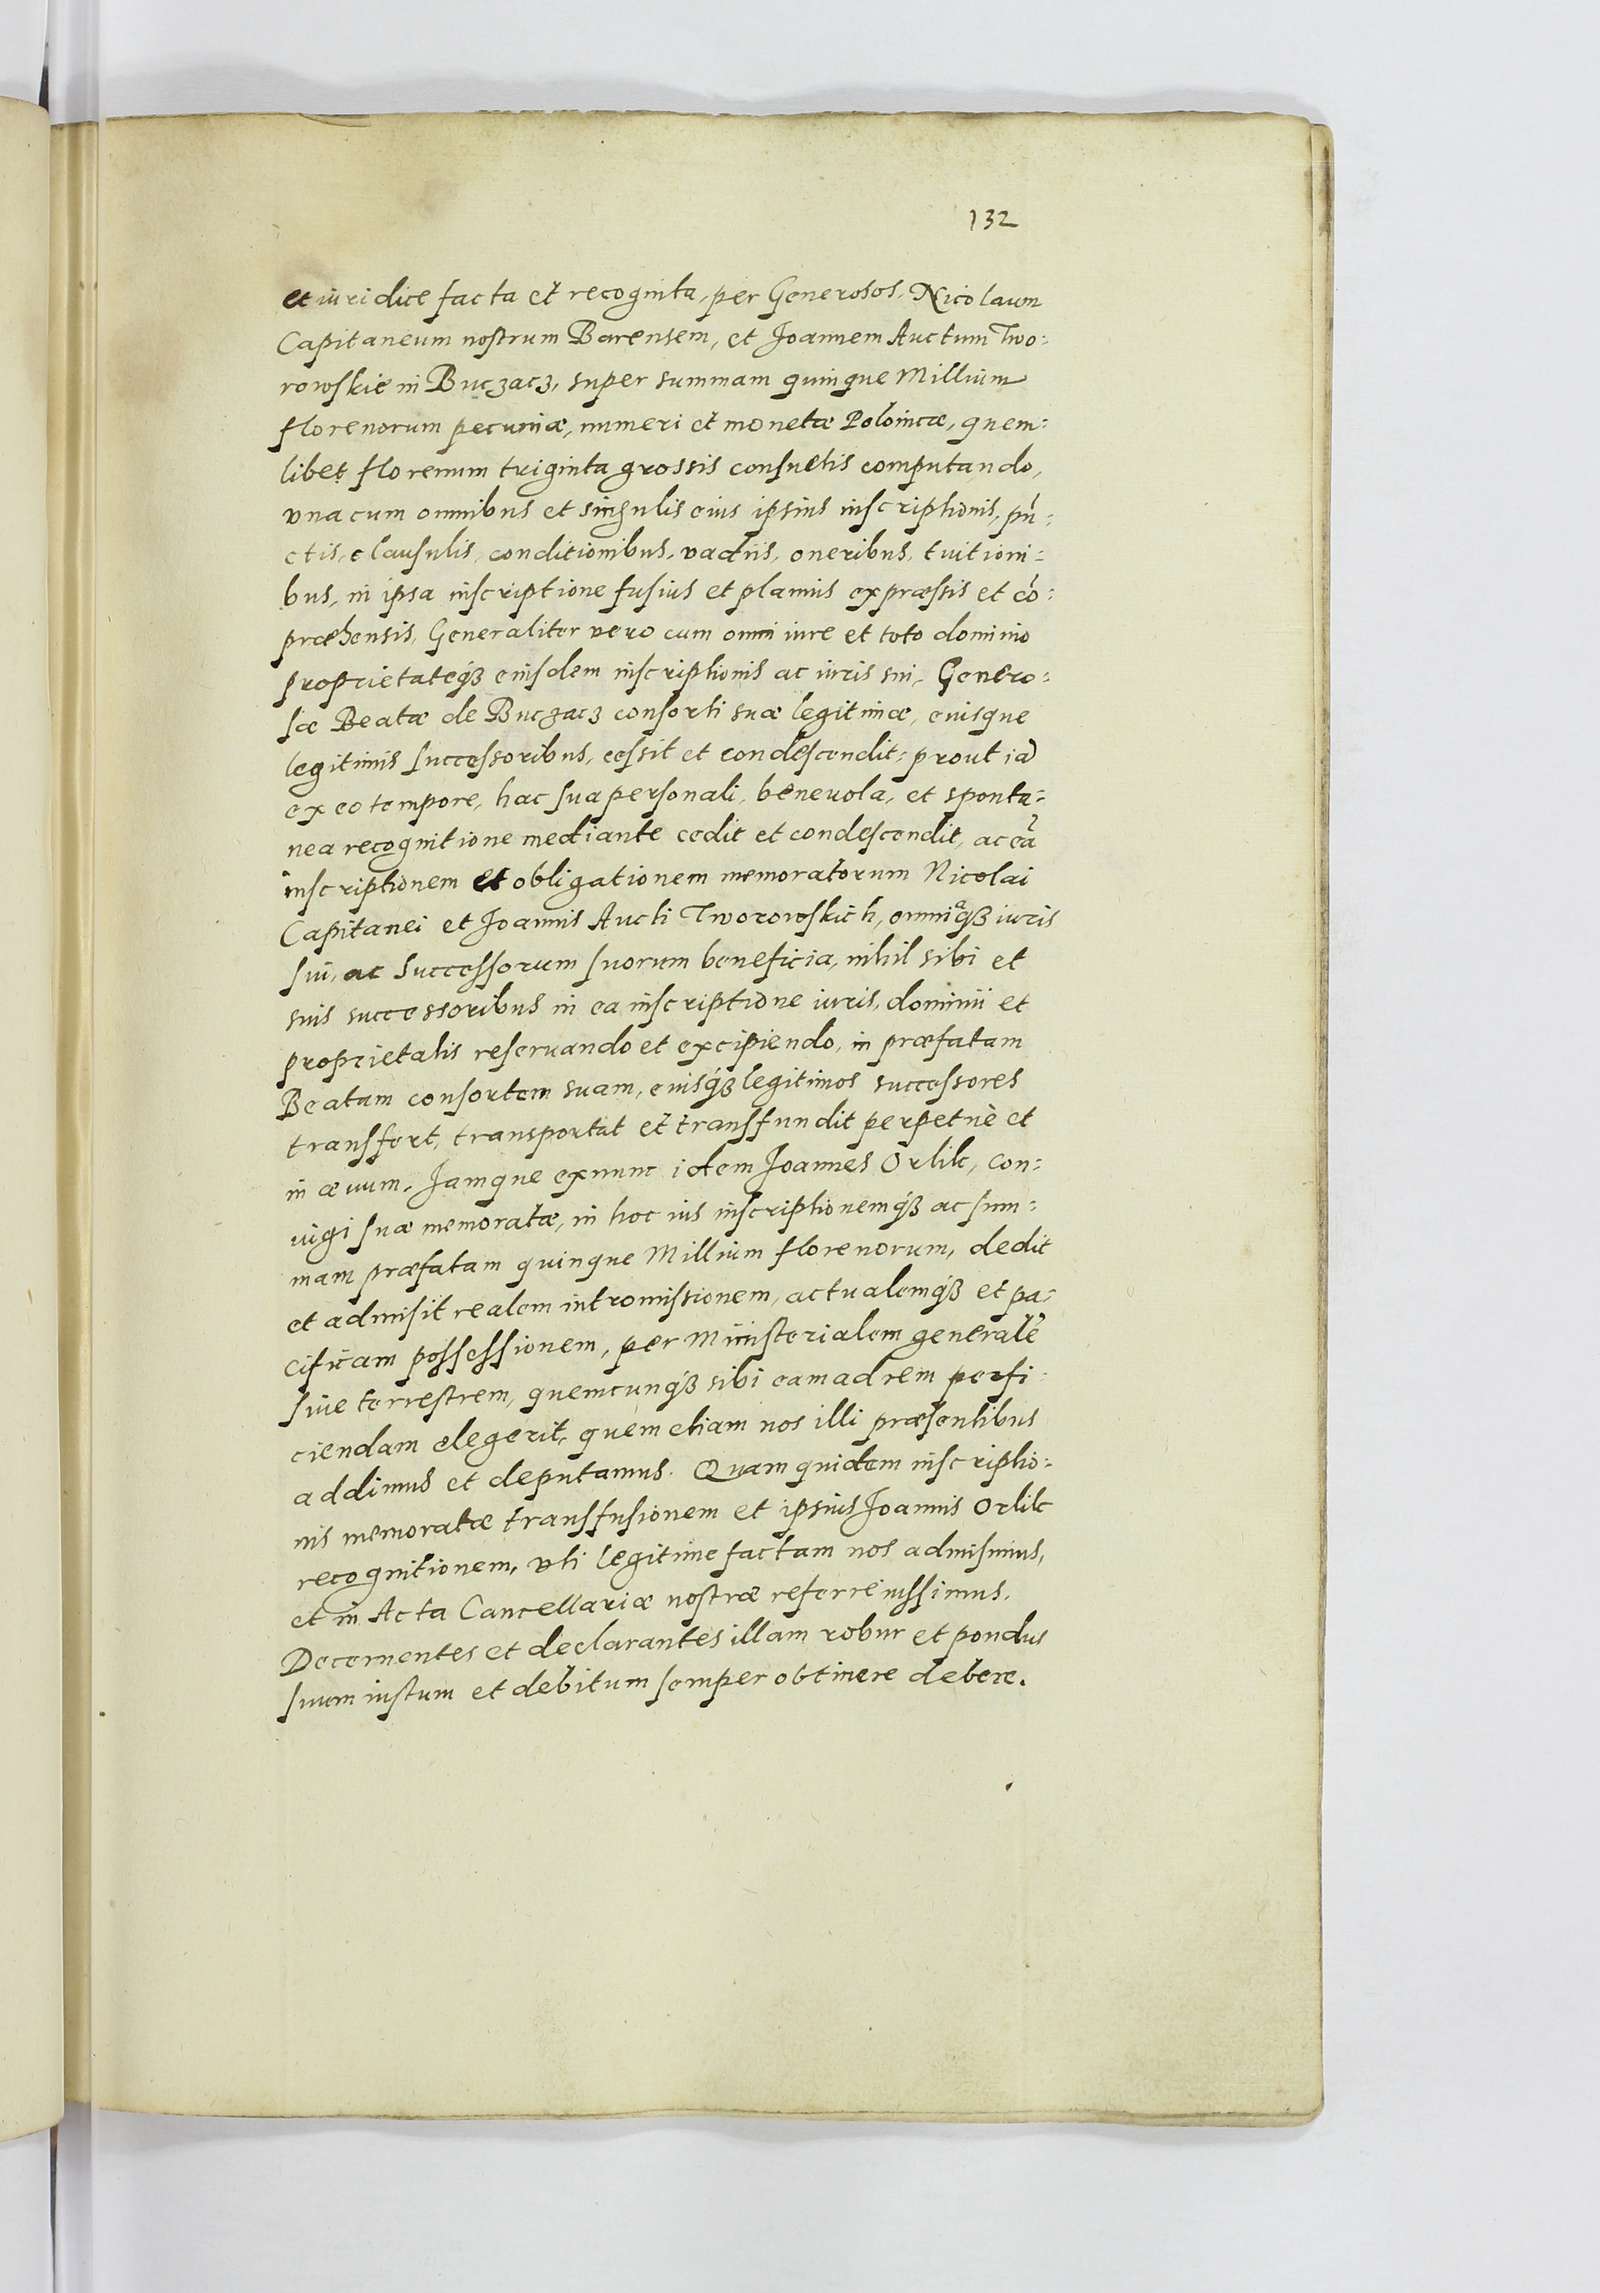 132
et iuridice facta et recognita, per Generosos, Nicolaum
Capitaneum nostrum Barensem, et Joannem Auctum Two:
rowskie in Buczacz, super summam quinque Millium
florenorum pecuniæ, numeri et monetæ Polonicæ, quem:
libet florenum triginta grossis consuetis computando,
vna cum omnibus et singulis eius ipsius inscriptionis, pũ:
ctis, clausulis, conditionibus, vadiis, oneribus, tuitioni:
bus, in ipsa inscriptione fusius et planius expræssis et cõ:
præhensis, Generaliter vero cum omni iure et toto dominio
proprietateqȝ eiusdem inscriptionis ac iuris sui, Genero:
sæ Beatæ de Buczacz consorti suæ legitimæ, eiusque
legitimis successoribus, cessit et condescendit, prout iã
ex eo tempore, hac sua personali, beneuola, et sponta:
nea recognitione mediante cedit et condescendit, ac eã
inscriptionem et obligationem memoratorum Nicolai
Capitanei et Joannis Aucti Tworowskich, omniaqȝ iuris
sui, ac successorum suorum beneficia, nihil sibi et
suis successoribus in ea inscriptione iuris, dominii et
proprietatis reseruando et excipiendo, in præfatam
Beatam consortem suam, eiusqȝ legitimos successores
transfert, transportat et transfundit perpetuè et
in æuum. Jamque exnunc idem Joannes Orlik, con:
iugi suæ memoratæ, in hoc ius inscriptionemqȝ ac sum:
mam præfatam quinque Millium florenorum, dedit
et admisit realem intromissionem, actualemqȝ et pa:
cificam possessionem, per Ministerialem generalẽ
siue terrestrem, quemcunqȝ sibi eam ad rem perfi:
ciendam elegerit, quem etiam nos illi præsentibus
addimus et deputamus. Quam quidem inscriptio:
nis memoratæ transfusionem et ipsius Joannis Orlik
recognitionem, vti legitime factam nos admisimus,
et in Acta Cancellariæ nostræ referre iussimus.
Decernentes et declarantes illam robur et pondus
suum iustum et debitum semper obtinere debere.